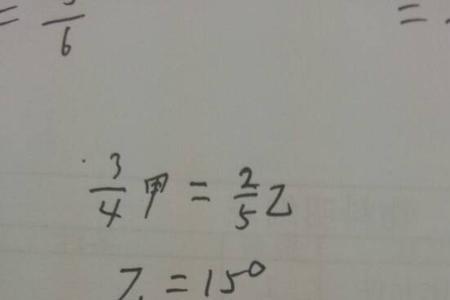 = 5/6 =
3/4 甲 = 2/5 乙
乙 = 150